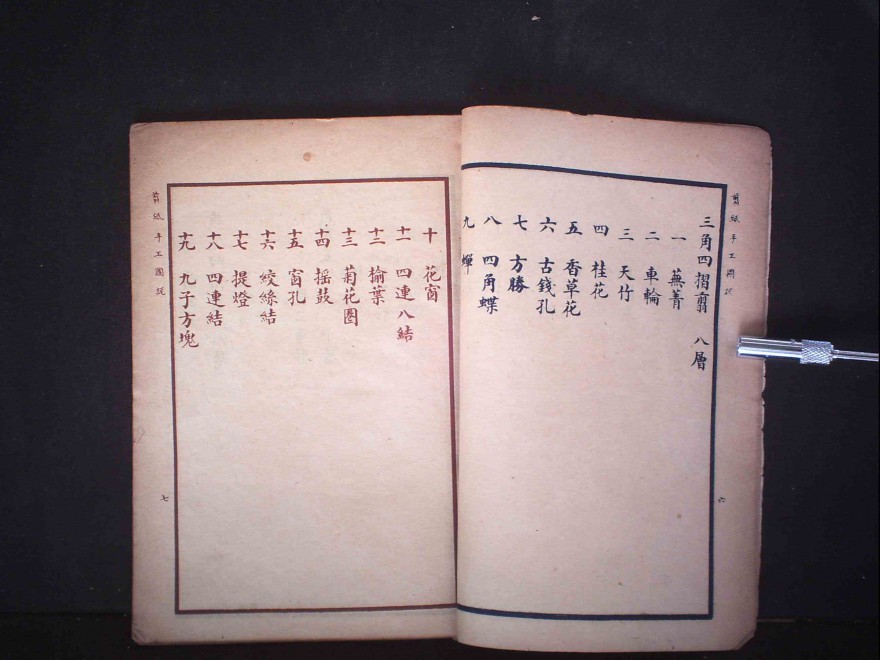 剪紙手工圖說
三角四摺剪 八層
一 蕪菁
二 車輪
三 天竹
四 桂花
五 香草花
六 古錢孔
七 方勝
八 四角蝶
九 蟬
六
十 花窗
十一 四連八結
十二 榆葉
十三 菊花圈
十四 搖鼓
十五 窗孔
十六 絞絲結
十七 提燈
十八 四連結
十九 九子方塊
剪紙手工圖說
七